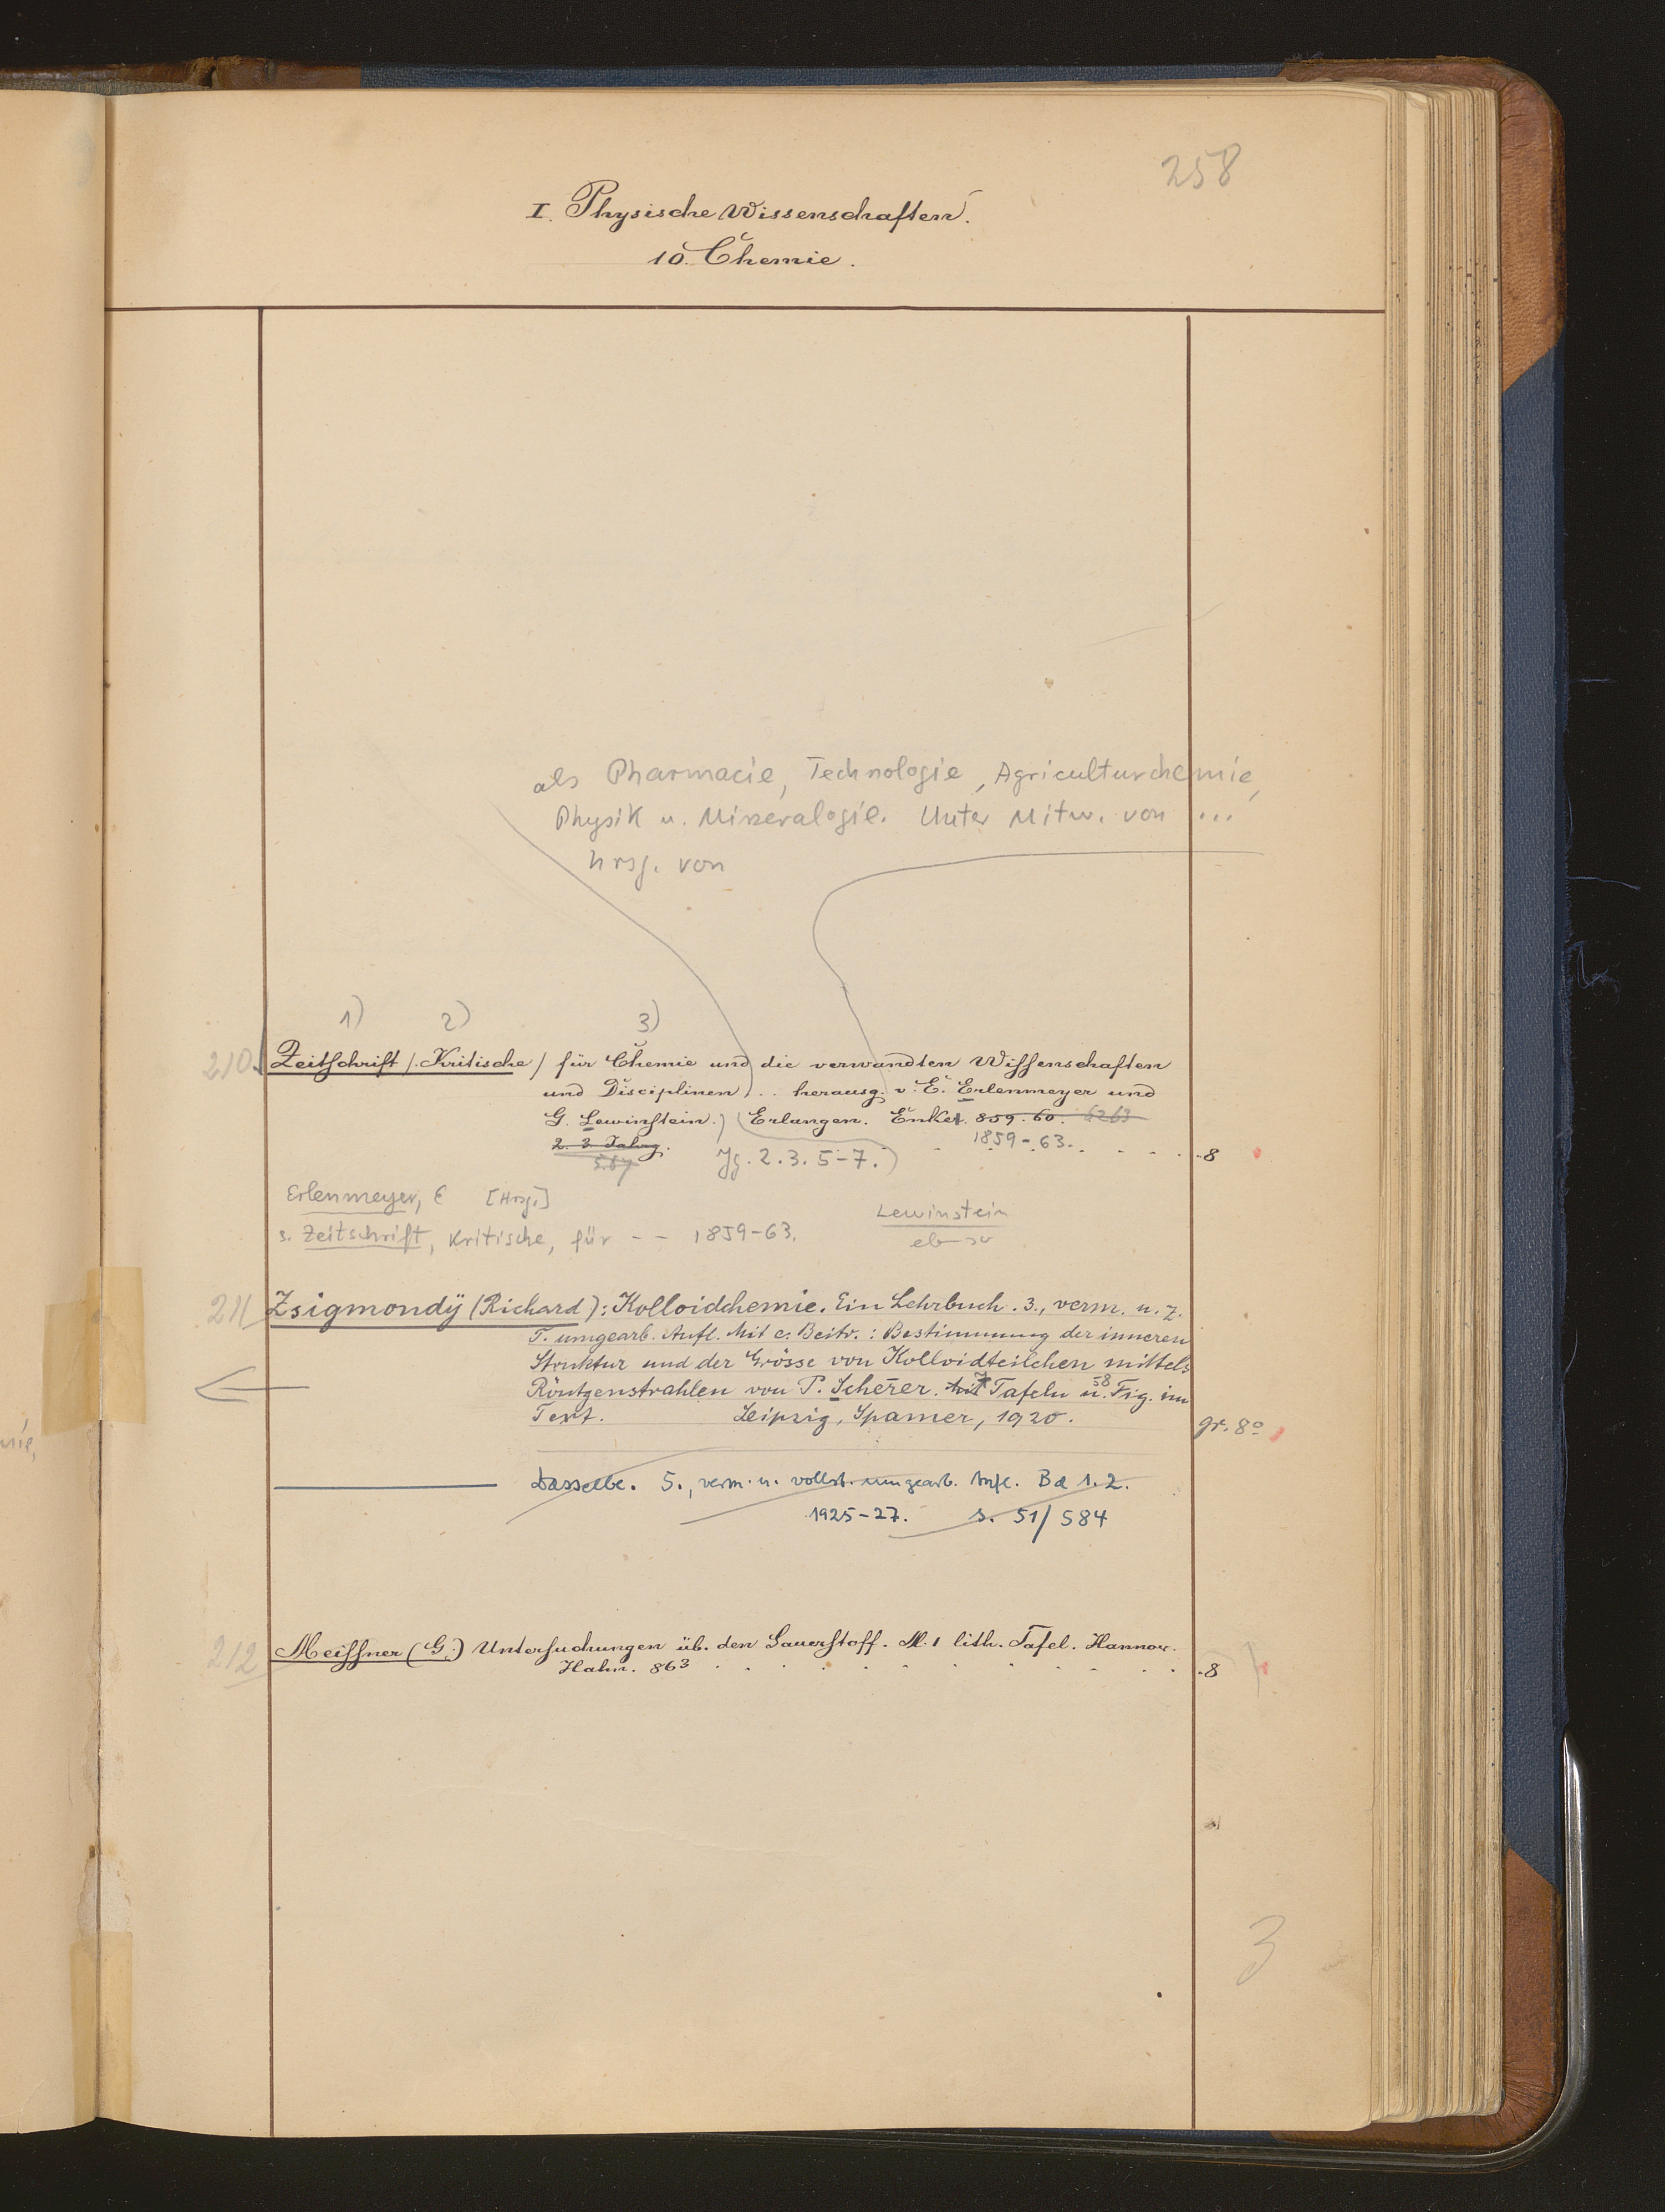 258
I. Physische Wissenschaften.
10. Chemie.
als Pharmacie, Technologie, Agriculturchemie,
Physik u. Mineralogie. Unter Mitw. von ...
hrsg. von
1) 2) 3)
210. Zeitschrift /. Kritische / für Chemie und die verwandten Wissenschaften
und Disciplinen, .. herausg. v. E. Erlenmeyer und
G. Lewinstein.) (Erlangen. Enke. 859. 60. 6263
2. 3. Jahrg. 1859-63. 8
5.67 Jg. 2.3. 5-7.)
Erlenmeyer, E [Hrsg.] Lewinstein
s. Zeitschrift, kritische, für - - 1859-63. ebso
211 Zsigmondÿ (Richard): Kolloidchemie. Ein Lehrbuch. 3., verm. u. z.
T. umgearb. Aufl. Mit e. Beitr.: Bestimmung der inneren
Struktur und der Grösse von Kolloidteilchen mittels
Röntgenstrahlen von P. Scherer. Mit 7 Tafeln u. 58 Fig. im
Text. Leipzig, Spamer, 1920. gr. 8º
Dasselbe. 5., verm. u. vollst. umgearb. Aufl. Bd 1.2.
1925-27. s. 51/584
212 Meissner (G.) Untersuchungen üb. den Sauerstoff. M. 1 lith. Tafel. Hannov.
Hahn. 863 . . . . . . . . . . . 8
3